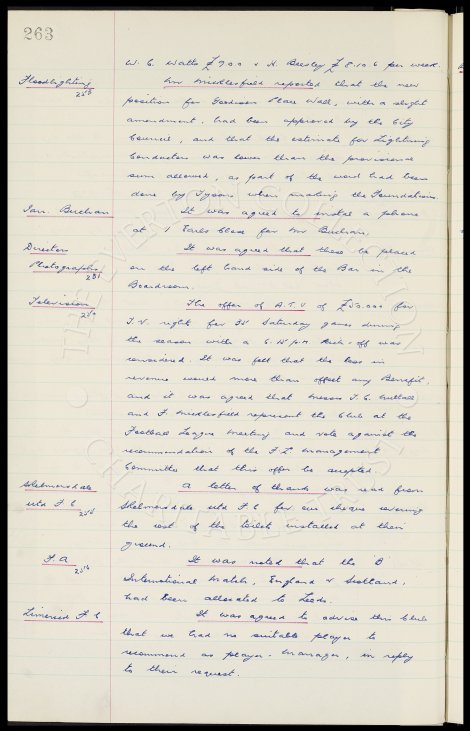 263
W. C. Watts £9.0.0 & H. Beesley £8.10.6 per week.
Floodlighting
258
Mr Micklesfield reported that the new
position for Goodison Place Wall, with a slight
amendment, had been approved by the City
Council, and that the estimate for Lightning
Conductors was lower than the provisional
sum allowed, as part of the work had been
done by Tysons when making the Foundations.
Ian. Buchan
It was agreed to instal a phone
at 1 Earls Close for Mr Buchan.
Directors
Photographs
251
It was agreed that these be placed
on the left hand side of the Bar in the
Boardroom.
Television
The offer of A.T.V of £50.000 for
T.V. rights for 35 Saturday games during
the season with a 6.15 p.m. Kick-off was
considered. It was felt that the loss in
revenue would more than offset any Benefit,
and it was agreed that Messrs T. C. Nuttall
and F. Micklesfield represent the Club at the
Football League Meeting and vote against the
recommendation of the F.L. Management
Committee that this offer be accepted.
Skelmersdale
utd F C
A letter of thanks was read from
Skelmersdale utd F C for our cheque covering
the cost of the toilets installed at their
ground.
F.A
256
It was noted that the 'B
International Match, England v Scotland,
had been allocated to Leeds.
Limerick F C
It was agreed to advise this Club
that we had no suitable player to
recommend as player-manager, in reply
to their request.
THE EVERTON COLLECTION
CHARITABLE TRUST